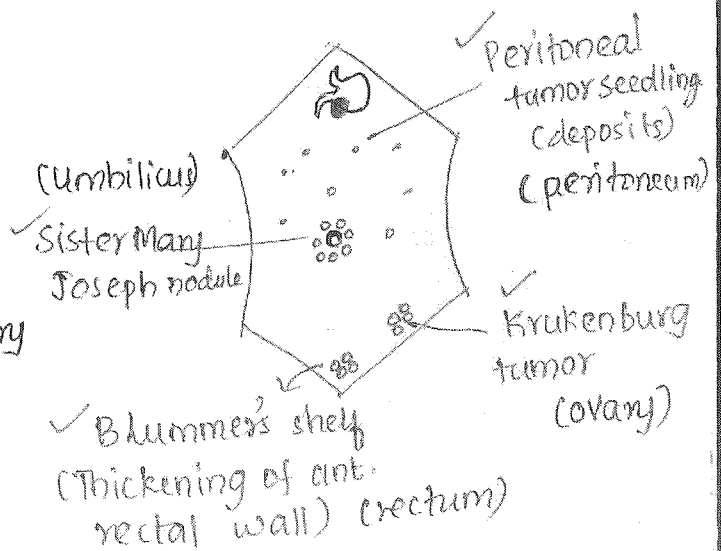 ✓ Peritoneal
tumor seedling
(deposits)
(peritoneum)
(umbilicus)
✓ Sister Mary
Joseph nodule
ry
✓ Krukenburg
tumor
(ovary)
✓ Blummer's shelf
(Thickening of ant.
rectal wall) (rectum)